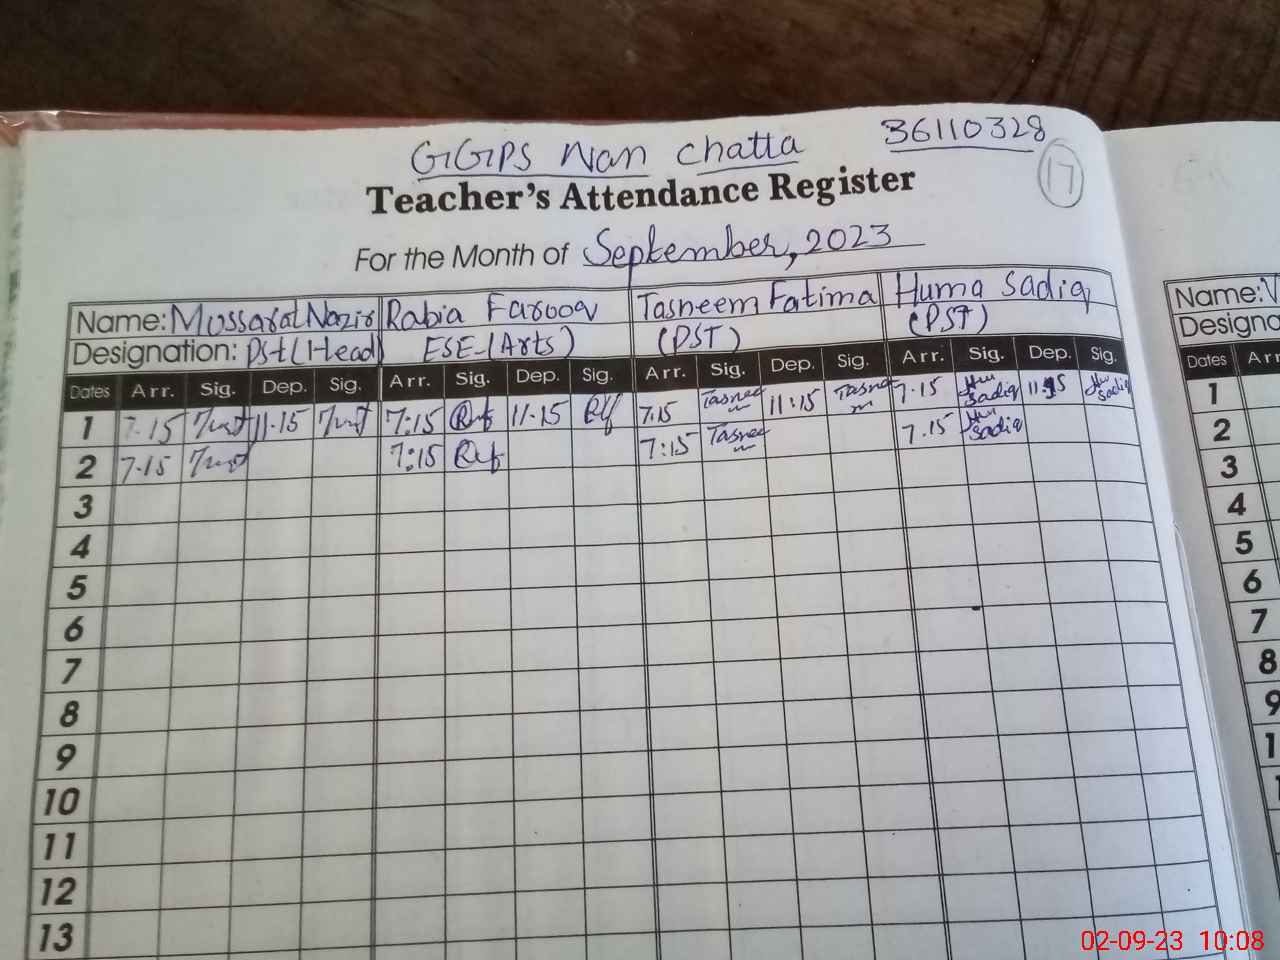 GGPS Nan Chatta 36110328
17
Teacher's Attendance Register
For the Month of September, 2023
Name: Mussarat Nazir Rabia Farooq Tasneem Fatima Huma Sadiq
Designation: PSt (Head) ESE-(Arts) (PST) (PST)
Dates Arr. Sig. Dep. Sig. Arr. Sig. Dep. Sig. Arr. Sig. Dep. Sig. Arr. Sig. Dep. Sig.
1 7.15 11.15 7:15 11-15 7.15 Tasneem 11:15 Tasneem 7.15 Huma Sadiq 11.15 Huma Sadiq
2 7.15 7:15 7:15 Tasneem 7.15 Huma Sadiq
3
4
5
6
7
8
9
10
11
12
13
Name:
Designa
Dates Arr
1
2
3
4
5
6
7
8
9
1
1
02-09-23 10:08